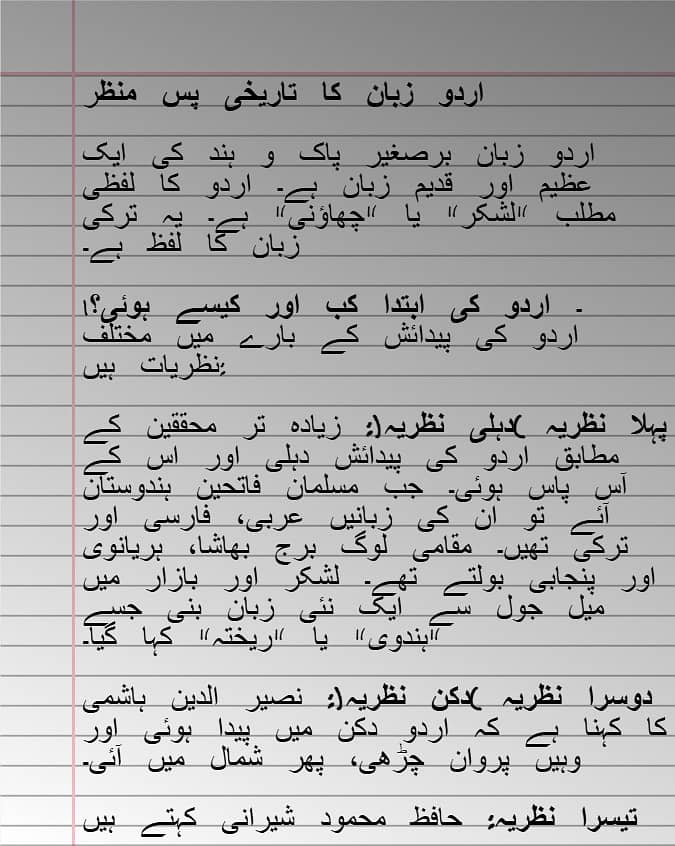 اردو زبان کا تاریخی پس منظر
اردو زبان برصغیر پاک و ہند کی ایک
عظیم اور قدیم زبان ہے۔ اردو کا لفظی
مطلب "لشکر" یا "چھاؤنی" ہے۔ یہ ترکی
زبان کا لفظ ہے۔
۔ اردو کی ابتدا کب اور کیسے ہوئی؟1
اردو کی پیدائش کے بارے میں مختلف
نظریات ہیں:
پہلا نظریہ (دہلی نظریہ): زیادہ تر محققین کے
مطابق اردو کی پیدائش دہلی اور اس کے
آس پاس ہوئی۔ جب مسلمان فاتحین ہندوستان
آئے تو ان کی زبانیں عربی، فارسی اور
ترکی تھیں۔ مقامی لوگ برج بھاشا، ہریانوی
اور پنجابی بولتے تھے۔ لشکر اور بازار میں
میل جول سے ایک نئی زبان بنی جسے
"ہندوی" یا "ریختہ" کہا گیا۔
دوسرا نظریہ (دکن نظریہ): نصیر الدین ہاشمی
کا کہنا ہے کہ اردو دکن میں پیدا ہوئی اور
وہیں پروان چڑھی، پھر شمال میں آئی۔
تیسرا نظریہ: حافظ محمود شیرانی کہتے ہیں